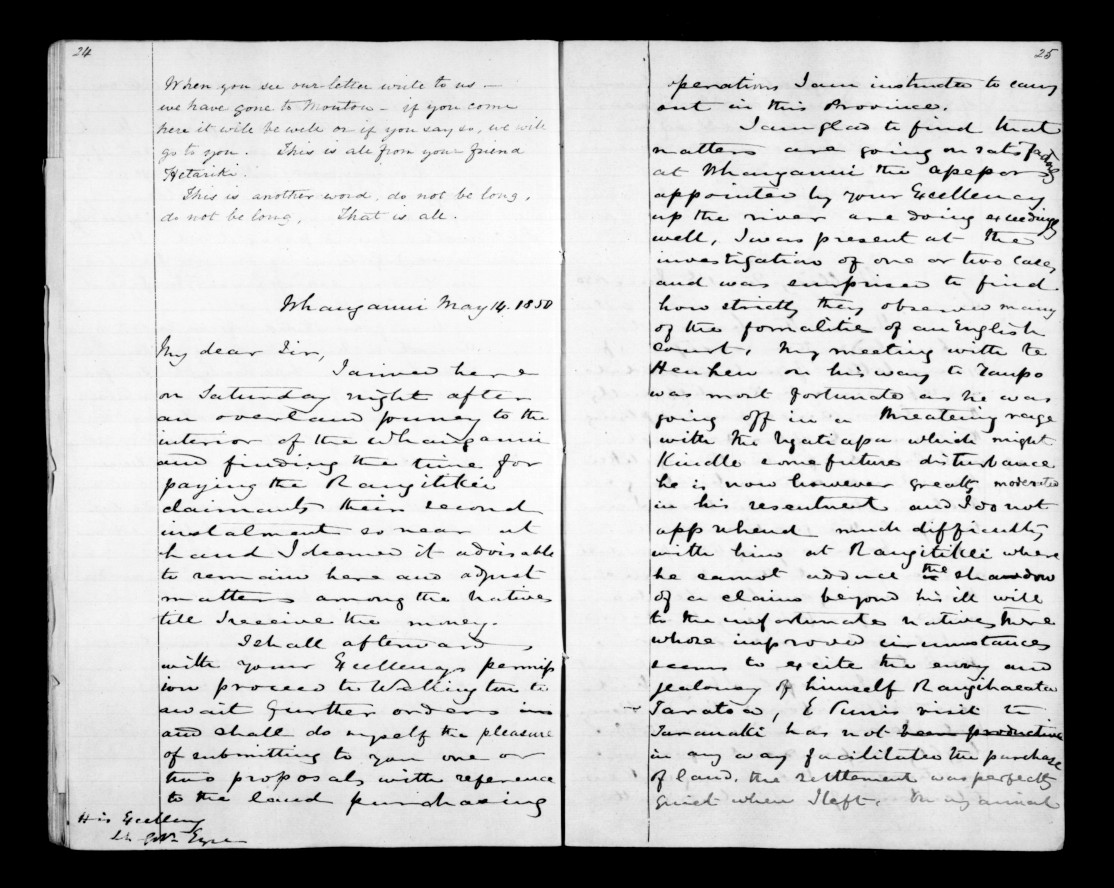 24
When you see our letter write to us -
we have gone to Moutoa - if you come
here it will be well or if you say so, we will
go to you. This is all from your friend
Hetariki.
This is another word, do not be long,
do not be long, That is all.
Whanganui May 14. 1850
My dear Sir,
I arrived here
on Saturday night after
an overland journey to the
interior of the Whanganui
and finding the time for
paying the Rangitikei
claimants their second
instalment so near at
hand I deemed it advisable
to remain here and adjust
matters among the Natives
till I receive the money.
I shall afterwards
with your Excellencys permiss
ion proceed to Wellington to
await further orders
and shall do myself the pleasure
of submitting to you one or
two proposals with reference
to the land purchasing
His Excellency
Lt. Govr. Eyre
25
operations I am instructed to carry
out in this Province.
I am glad to find that
matters are going on satisfactorily
at Whanganui the
appointed by your Excellency
up the river are doing exceedingly
well, I was present at the
investigation of one or two cases
and was surprised to find
how strictly they observe many
of the formalities of an English
Court. My meeting with Te
Heuheu on his way to Taupo
was most fortunate as he was
going off in a threatening rage
with the Ngatiapa which might
kindle some future disturbance
he is now however greatly moderated
in his resentment and I do not
apprehend much difficulty
with him at Rangitikei where
he cannot adduce the shawdow
of a claim beyond his ill will
to the unfortunate natives there
whose improved circumstances
seems to excite the envy and
jealousy of himself Rangihaeata
E Puni's visit to
Taranaki has not been productive
in any way facilitated the purchase
of land, the settlement was perfectly
quiet when I left. On my arrival